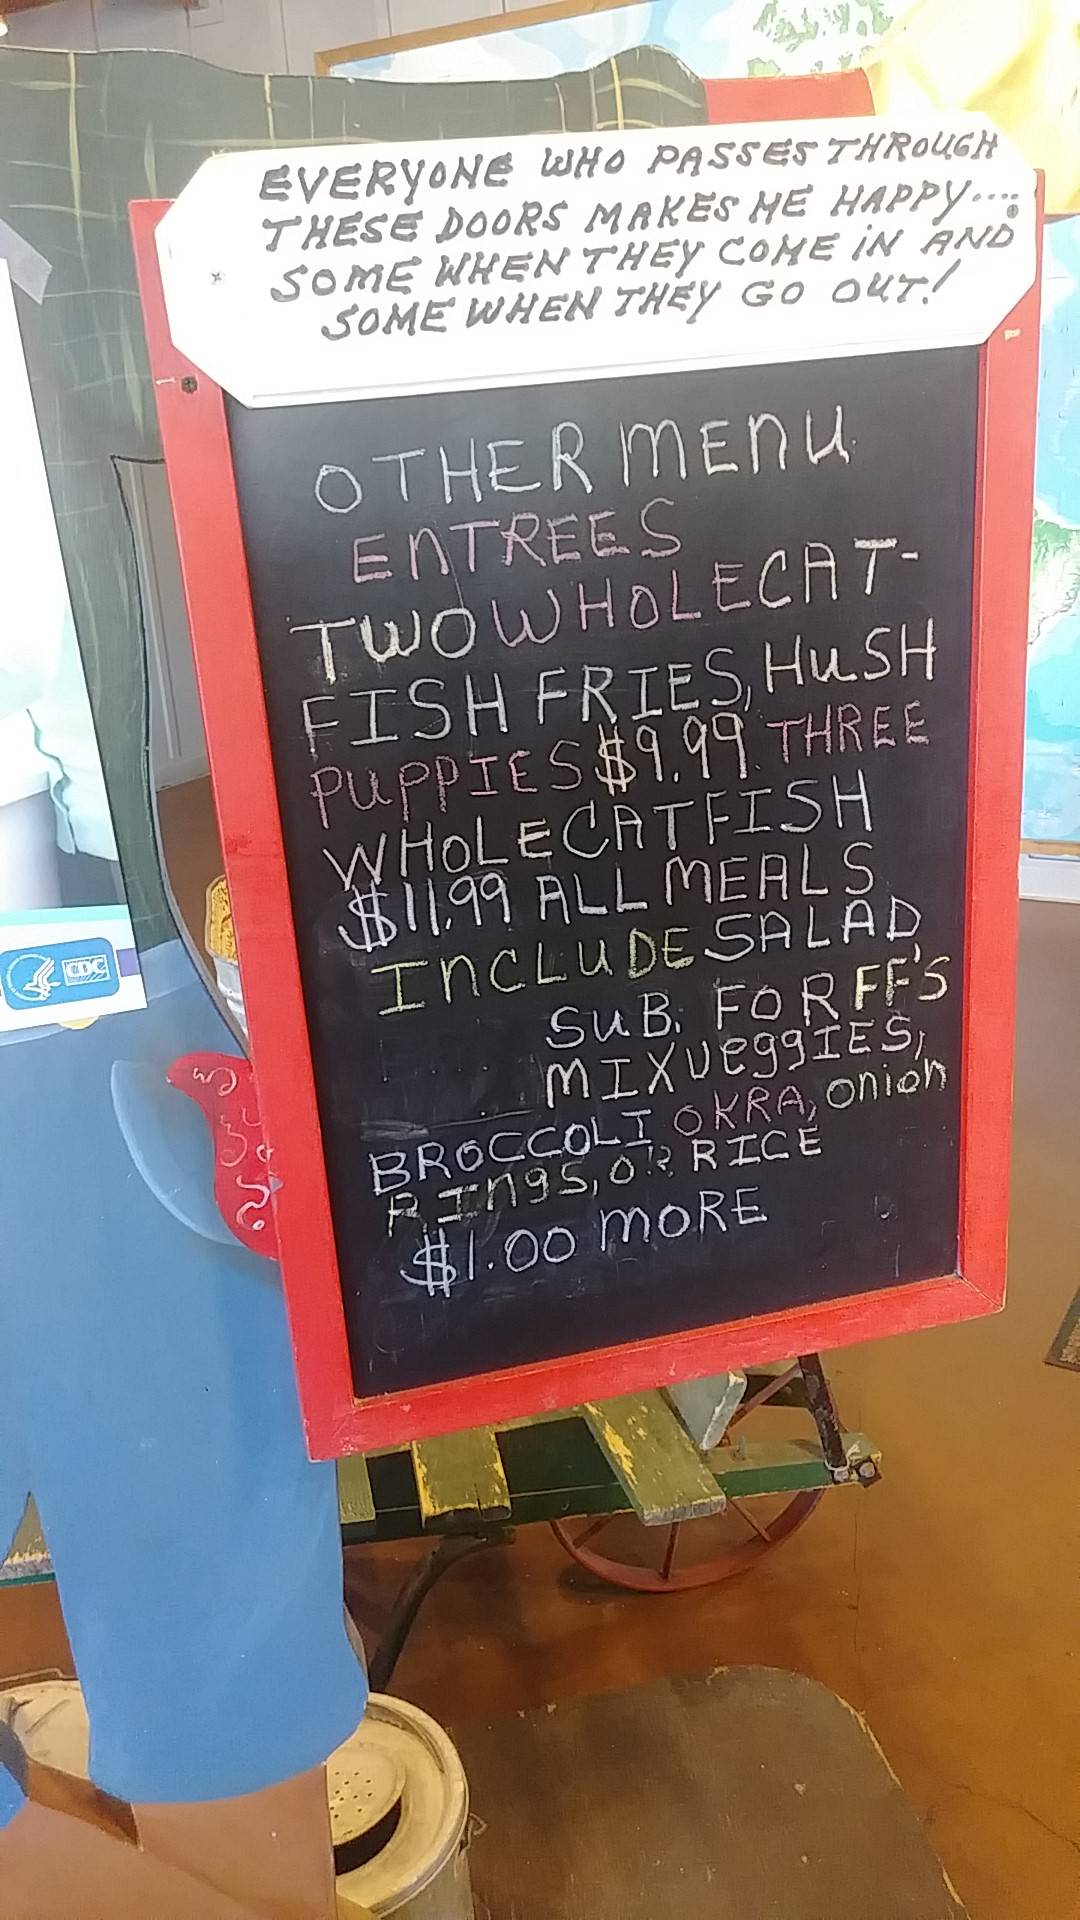 EVERYONE WHO PASSES THROUGH
THESE DOORS MAKES ME HAPPY....
SOME WHEN THEY COME iN AND
SOME WHEN THEY GO OUT!
OTHER MENU
ENTREES
TWO WHOLE CAT-
FISH FRIES, HUSH
PUPPIES $9.99 THREE
WHOLE CATFISH
$11.99 ALL MEALS
INCLUDE SALAD
SUB. FOR FF'S
MIX VEggIES,
BROCCOLI OKRA, Onion
RINgS, OR RICE
$1.00 MORE
CDC